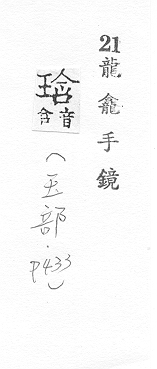 21龍龕手鏡
琀
音含
（玉部．P433）